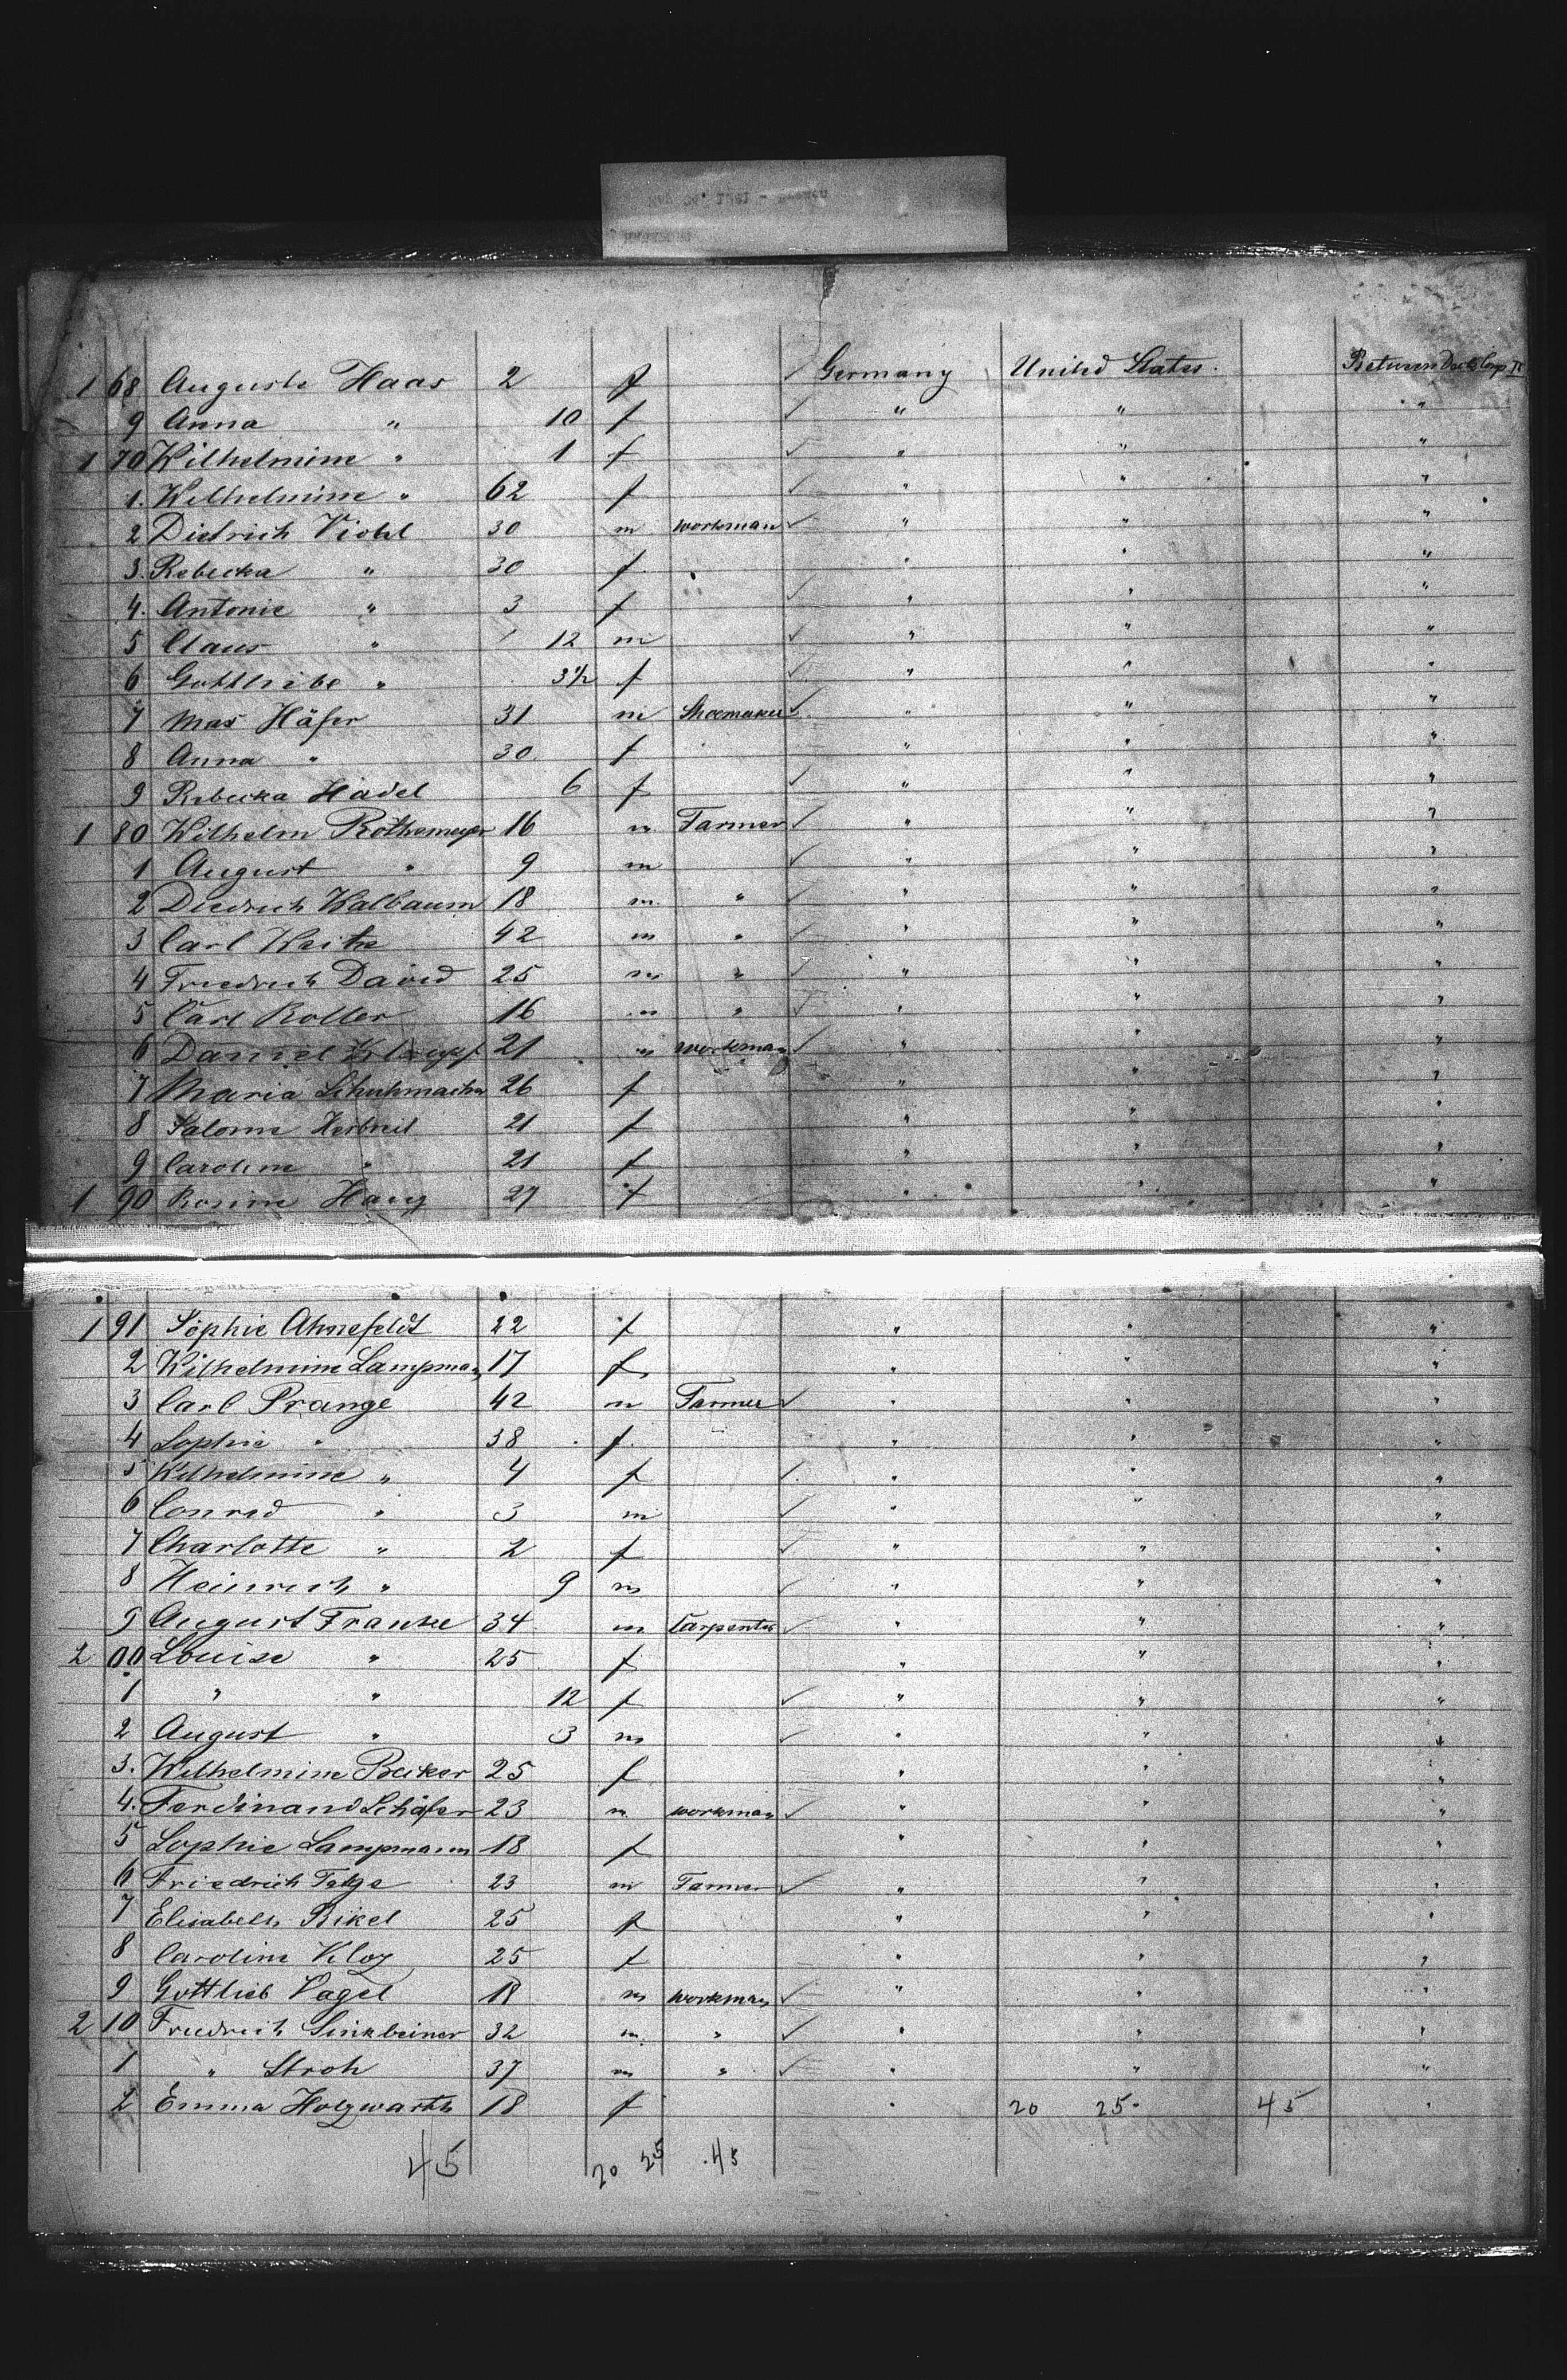 1 68 Auguste Haas 2 f ✓ Germany United States. Between Decks Comp II
9 Anna " 10 f ✓ " " "
1 70 Wilhelmine " 1 f ✓ " " "
1. Wilhelmine " 62 f ✓ " " "
2 Diedrich Viohl 30 m workman ✓ " " "
3. Rebecka " 30 f " " "
4. Antonie " 3 f ✓ " " "
5 Claus " 12 m ✓ " " "
6 Gottliebe " 3 1/2 f ✓ " " "
7 Max Häfer 31 m Shoemaker ✓ " " "
8 Anna " 30 f " " "
9 Rebecka Hadel 6 f ✓ " " "
1 80 Wilhelm Rothemeyer 16 m Farmer ✓ " " "
1 August " 9 m ✓ " " "
2 Diedrich Walbaum 18 m " ✓ " " "
3 Carl Weitze 42 m " ✓ " " "
4 Friedrich David 25 m " ✓ " " "
5 Carl Roller 16 m " ✓ " " "
6 Daniel 21 m workman ✓ " " "
7 Maria Schuhmacher 26 f " " "
8 Salome 21 f " " "
9 Caroline " 21 f " " "
1 90 Rosine Haug 27 f " " "
1 91 Sophie Ahnefeldt 22 f " " "
2 Wilhelmine Lampmann 17 f " " "
3 Carl Prange 42 m Farmer ✓ " " "
4 Sophie " 38 f " " "
5 Wilhelmine " 4 f ✓ " " "
6 Conrad " 3 m ✓ " " "
7 Charlotte " 2 f ✓ " " "
8 Heinrich " 9 m ✓ " " "
9 August Franke 34 m Carpenter ✓ " " "
2 00 Louise " 25 f " " "
1 " " 12 f ✓ " " "
2 August " 3 m ✓ " " "
3. Wilhelmine Becker 25 f " " "
4. Ferdinand Schäfer 23 m workman ✓ " " "
5 Sophie Lampmann 18 f " " "
6 Friedrich Tatge 23 m Farmer ✓ " " "
7 Elisabeth Bikel 25 f " " "
8 Caroline Kloz 25 f " " "
9 Gottlieb Vagel 18 m workman ✓ " " "
2 10 Friedrich Sinkbeiner 32 m " ✓ " " "
1 " Stroh 37 m " ✓ " " "
2 Emma Holzwarth 18 f " 20 25 45 "
45 20 25 45